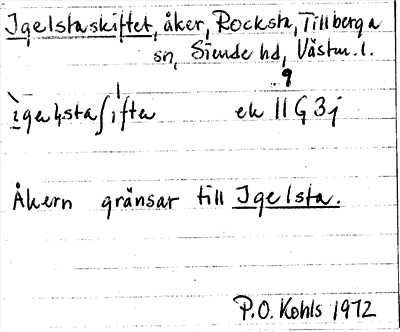 Igelstaskiftet, åker, Rocksta, Tillberga
sn, Siende hd, Västm. l.
9
ek 11G3j
Åkern gränsar till Igelsta.
P.O. Kohls 1972